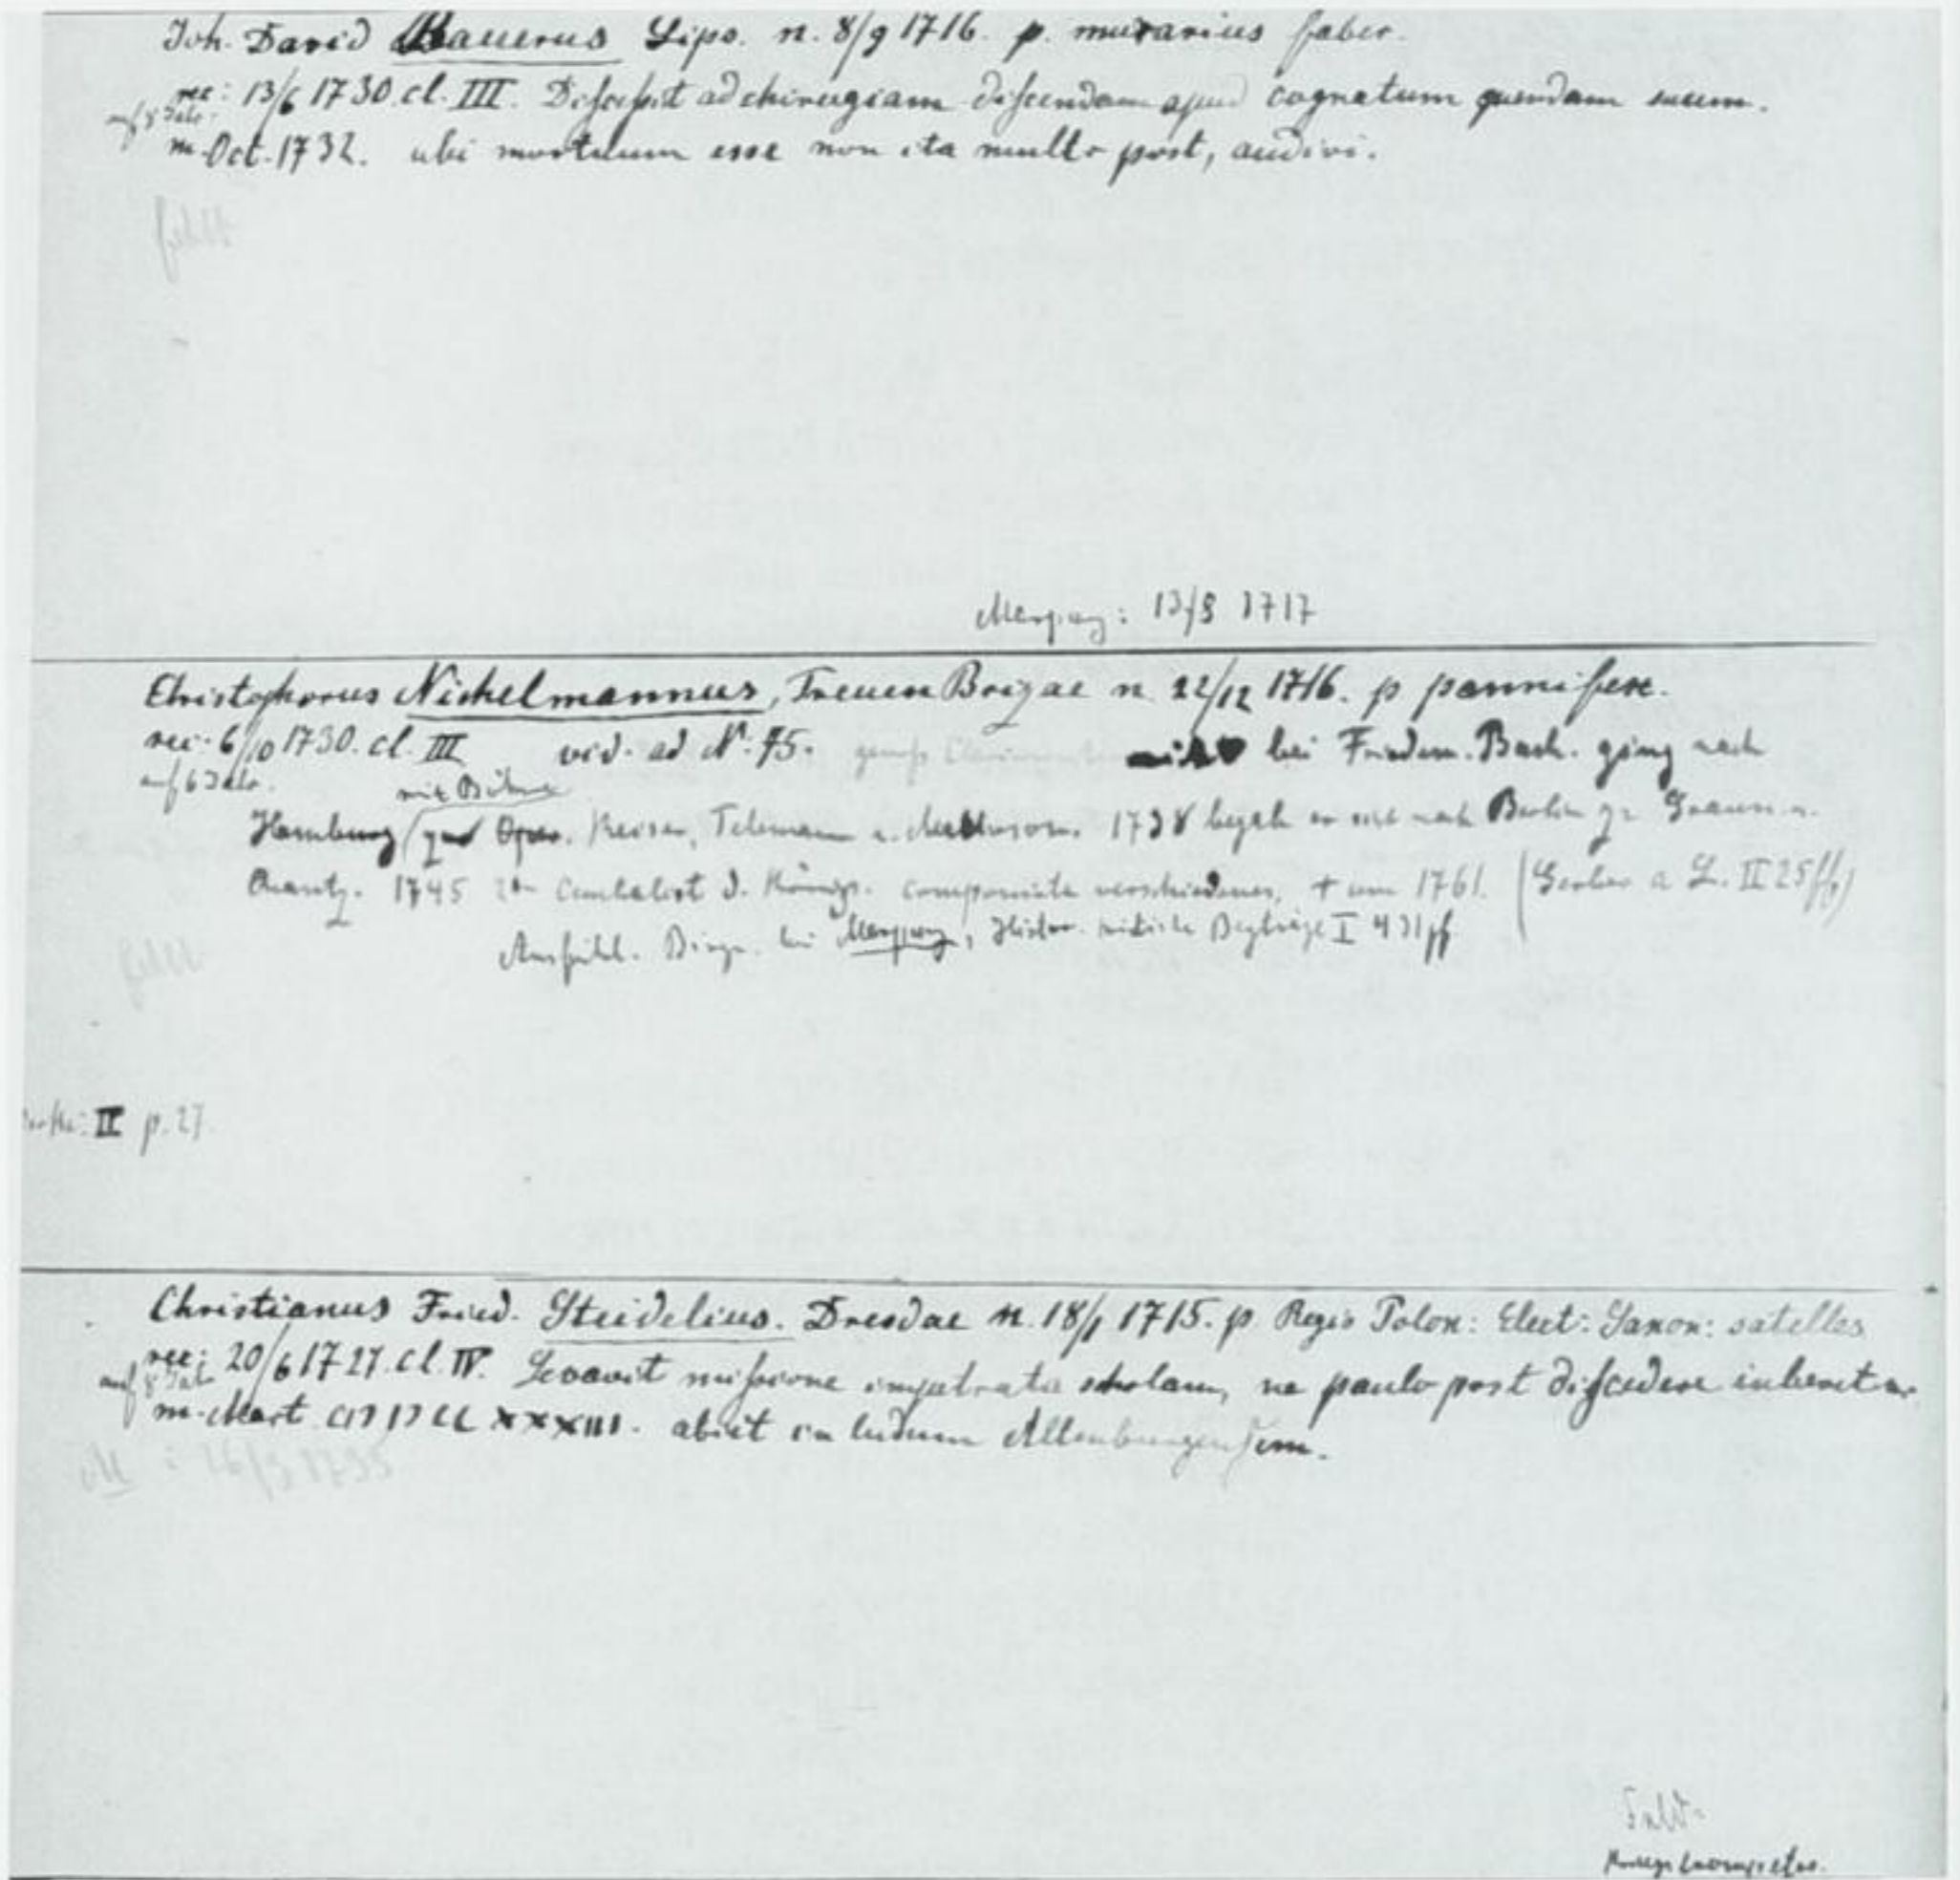 Joh. David Bauerus Lips. n. 8/9 1716. p. murarius faber.
rec: 13/6 1730. cl. III. Discessit ad chirurgiam discendam apud cognatum quendam suum.
auf 8 Jahr.
m. Oct. 1732. ubi mortuum esse non ita multo post, audivi.
fehlt
Marpurg: 13/8 1717
Christophorus Nichelmannus, TreuenBrizae n 22/12 1716. p pannifex.
rec: 6/10 1730. cl. III vid. ad N. 75. bei Friedem. Bach. ging nach
auf 6 Jahr.
Hamburg zur Oper. Keiser, Telemann u. Mattheson. 1738 begab er sich nach Berlin zu Graun u.
Quantz. 1745 2ten Cembalist d. Königs. componirte verschiedenes, + um 1761. (Gerber a L. II 25ff)
Ausführl. Biogr. bei Marpurg, Histor. kritische Beyträge I 431ff
fehlt
II p. 27.
Christianus Fried. Steidelius. Dresdae n. 18/1 1715. p. Regis Polon: Elect: Saxon: satelles
rec: 20/6 1727. cl. IV. missione impetrata scholam, ne paulo post discedere iuberetur
auf 8 Jahr
m. Mart. XXXIII. abiit in ludum Altenburgensem.
M : 26/3 1735
Fehlt